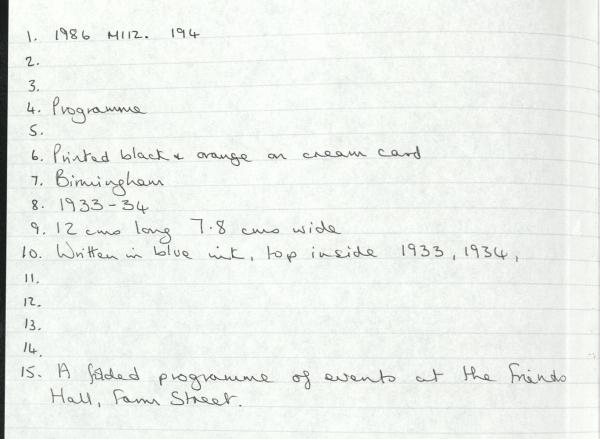 1. 1986 M112. 194
2.
3.
4. Programme
5.
6. Printed black & orange on cream card
7. Birmingham
8. 1933-34
9. 12 cms long 7.8 cms wide
10. Written in blue ink, top inside 1933, 1934,
11.
12.
13.
14.
15. A folded programme of events at the Friends
Hall, Farm Street.